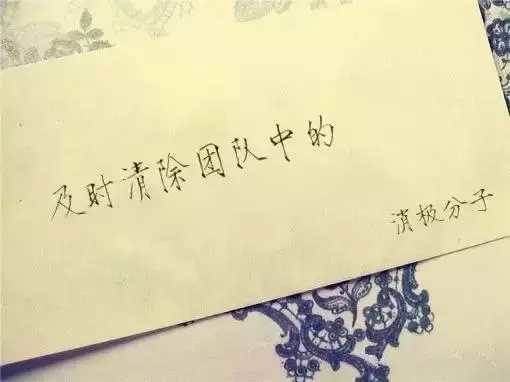 及时清除团队中的
消极分子